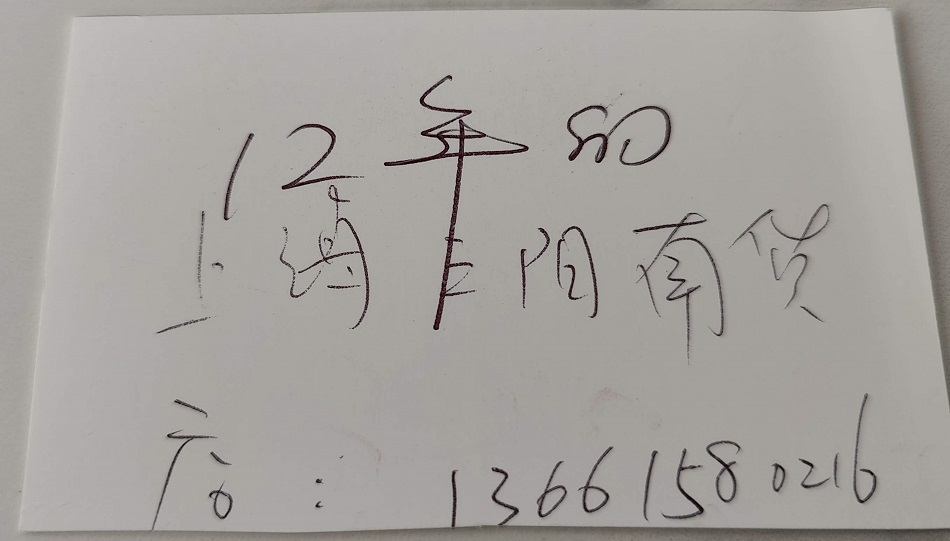 12年
上海阳南货
店：13661580216